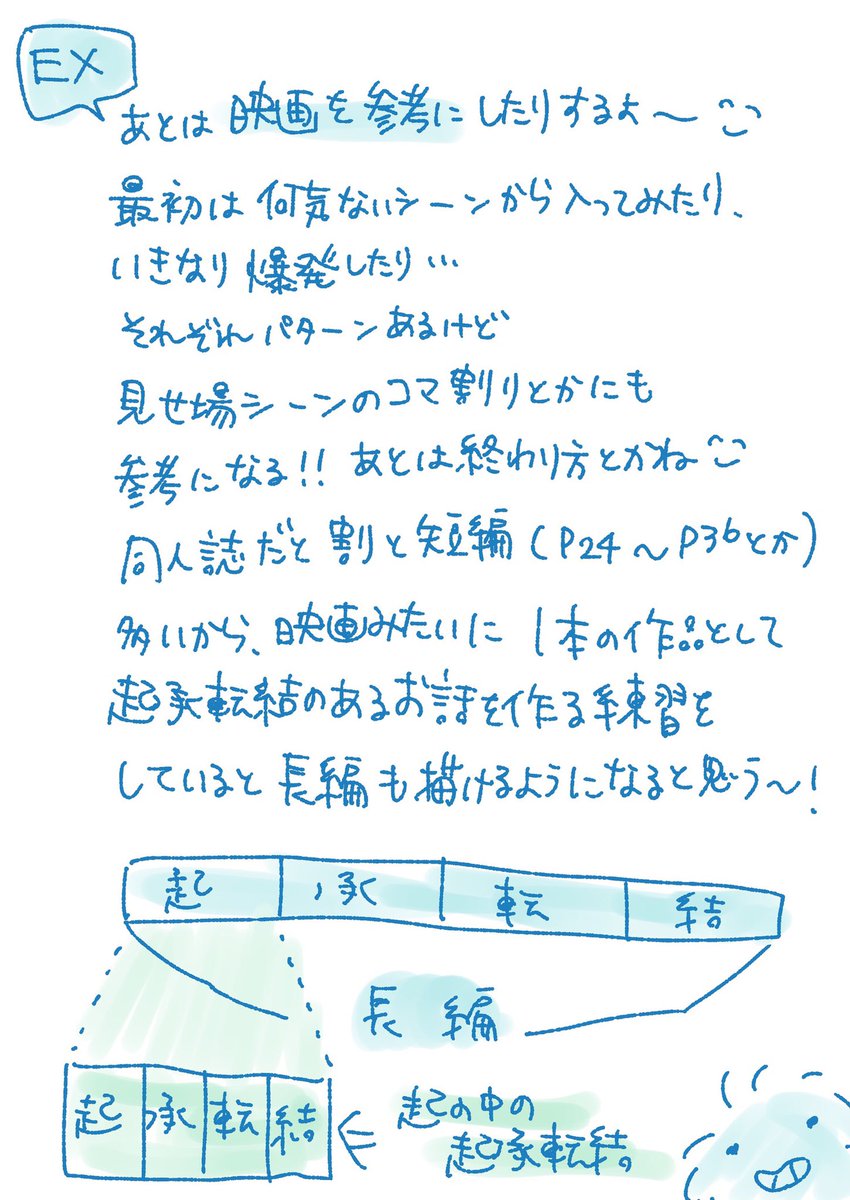 EX
あとは映画を参考にしたりするよ〜
最初は何気ないシーンから入ってみたり、
いきなり爆発したり…
それぞれパターンあるけど
見せ場シーンのコマ割りとかにも
参考になる!! あとは終わり方とかね
同人誌だと割と短編(P24〜P36とか)
多いから、映画みたいに1本の作品として
起承転結のあるお話を作る練習を
していると長編も描けるようになると思う〜!
起 承 転 結
長編
起 承 転 結
起の中の
起承転結。